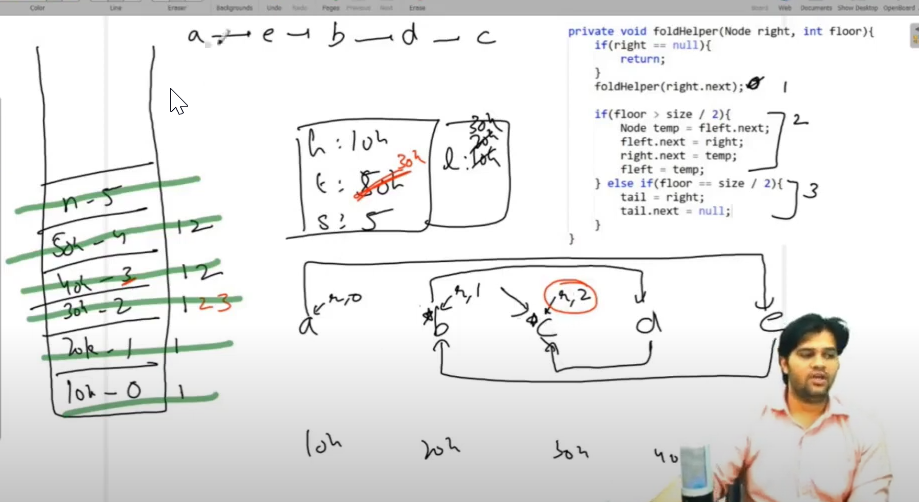 Color Line Eraser Backgrounds Undo Redo Pages Previous Next Erase Board Web Documents Show Desktop OpenBoard
a → e → b — d — c
private void foldHelper(Node right, int floor){
if(right == null){
return;
}
foldHelper(right.next); 1
if(floor > size / 2){
Node temp = fleft.next; 2
fleft.next = right;
right.next = temp;
fleft = temp;
} else if(floor == size / 2){
tail = right; 3
tail.next = null;
}
}
h : 10k
t : 50k 30k
s : 5
30k
20k
l : 10k
n - 5
50k - 4 1 2
40k - 3 1 2
30k - 2 1 2 3
20k - 1 1
10k - 0 1
r,0 r,1 r,2
a b c d e
10k 20k 30k 40